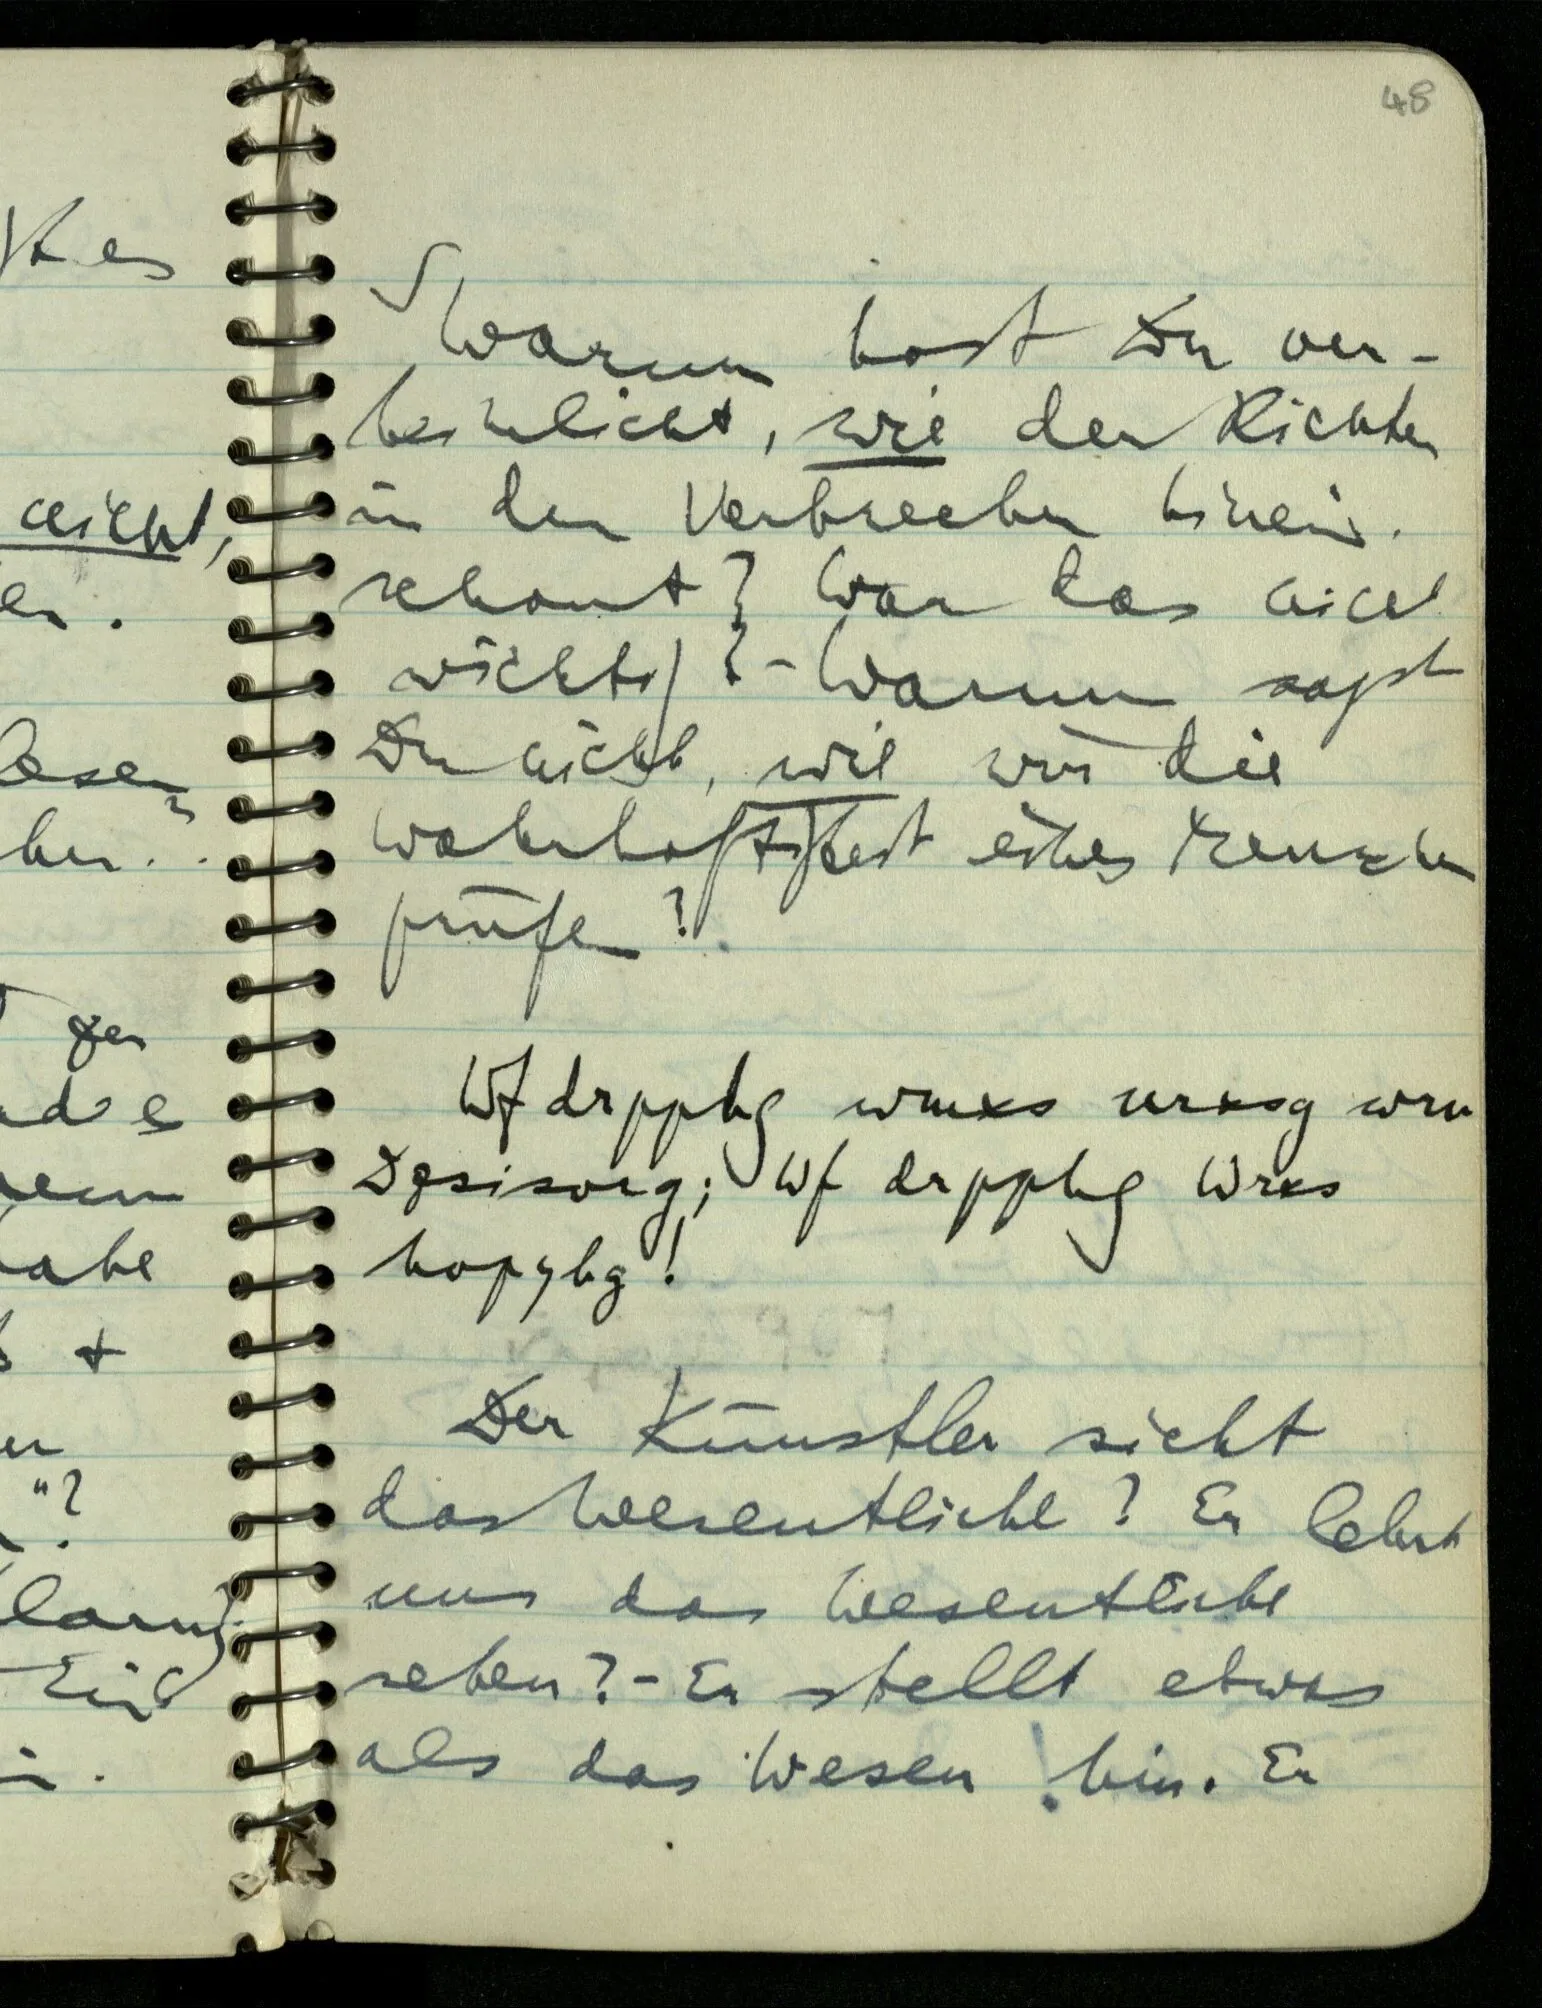 es
nicht,
48
Warum hast Du ver-
heimlicht, wie der Richter
in den Verbrecher hinein-
schaut? War das nicht
wichtig? – Warum sagst
Du nicht, wie wir die
Wahrhaftigkeit eines Menschen
prüfen?
Wf drpphg wmxs nrxsg wrv
Dzsisvrg; Wf drpphg Wrxs
hvpyhg!
Der Künstler sieht
das Wesentliche? Er lehrt
uns das Wesentliche
sehen? – Er stellt etwas
als das Wesen hin. Er